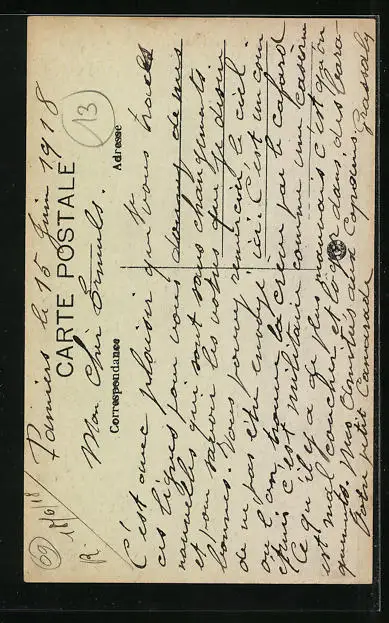 09 18/6/18
R.
Pamiers le 15 Juin 1918
13
CARTE POSTALE
Mon Cher
Correspondance
Adresse
C'est avec plaisir que je vous trace
ces lignes pour vous donner de mes
nouvelles qui sont sans changements
et pour savoir les votres que je désire
bonnes. Vous pouvez remercier le ciel
de ne pas être envoyé ici. C'est un coin
ou l'on trouve le crâne par le cafard
et puis c'est militaire comme une caserne
Ce qu'il y a de plus mauvais c'est qu'on
est mal coucher et loger dans des bara
quements. Mes Amitiés aux Copains.
Votre petit Camarade